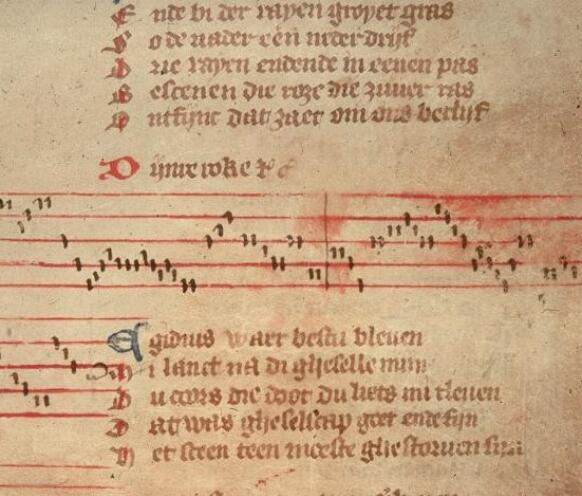 E nde bi der rayen groyet gras
S o de uader een neder drijf
D rie rayen endende in eenen pas
B escenen die roze die zuuer was
O ntfinc dat zaet om ons beclijf
D ijnre roke
E gidius waer bestu bleuen
M i lanct na di gheselle mijn
D u coors die doot du liets mi tleuen
D at was gheselscap goet ende fijn
H et sceen teen moeste ghestoruen sijn